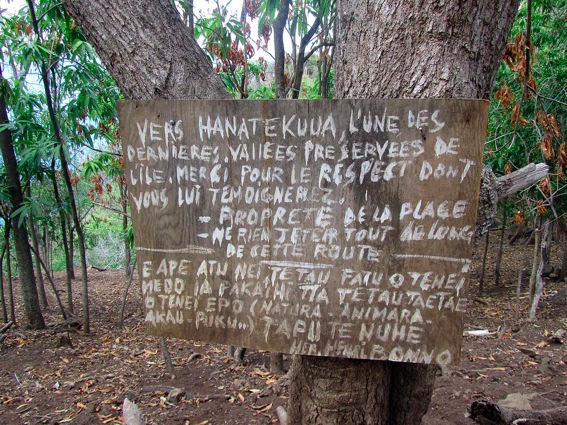 VERS HANATEKUUA, L'UNE DES
DERNIERES VALLÉES PRESERVÉES DE
L'ILE, MERCI POUR LE RESPECT DONT
VOUS LUI TEMOIGNEREZ:
- PROPRETÉ DE LA PLAGE
- NE RIEN JETER TOUT AU LONG
DE CETTE ROUTE
E APE ATU NEI TETAU FATU O TENEI
IA TIA TETAU TAETAE
O TENEI EPO (NATURA - ANIMARA -
AKAU PUKU...) TAPU TE NUHE
BONNO